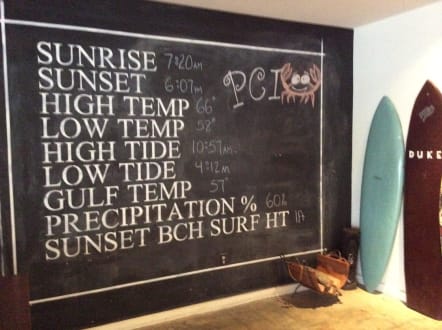 SUNRISE 7:20am
SUNSET 6:07m
PCI
HIGH TEMP 66°
LOW TEMP 58°
HIGH TIDE 10:57am
LOW TIDE 4:12m
GULF TEMP 57°
PRECIPITATION % 60%
SUNSET BCH SURF HT 1ft
DUKE